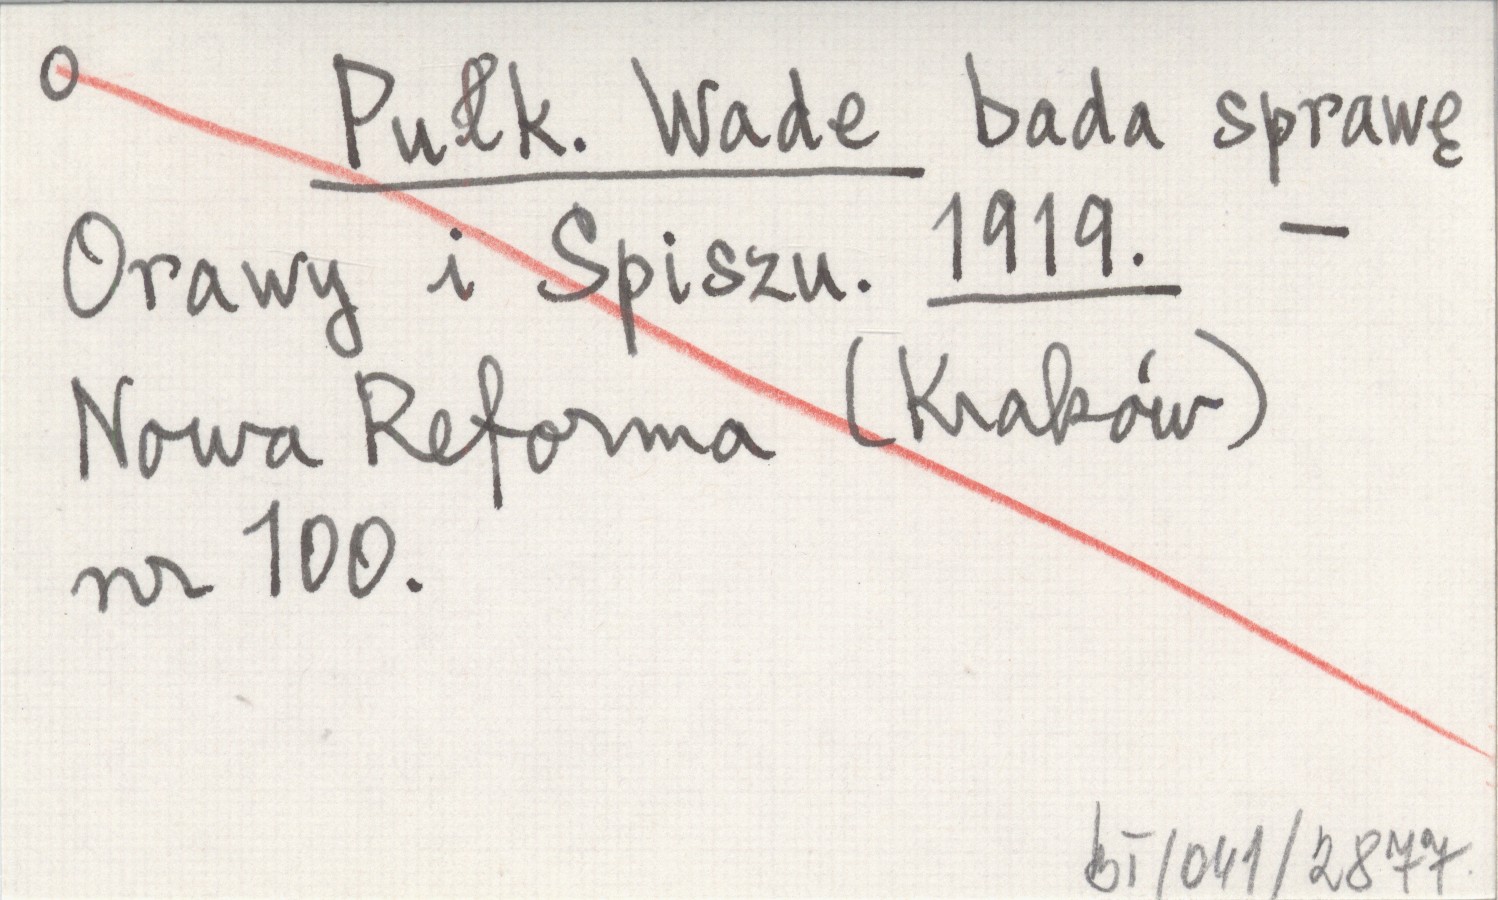 O Pułk. Wade bada sprawę
Orawy i Spiszu. 1919. —
Nowa Reforma (Kraków)
nr 100.
bī/041/2877.